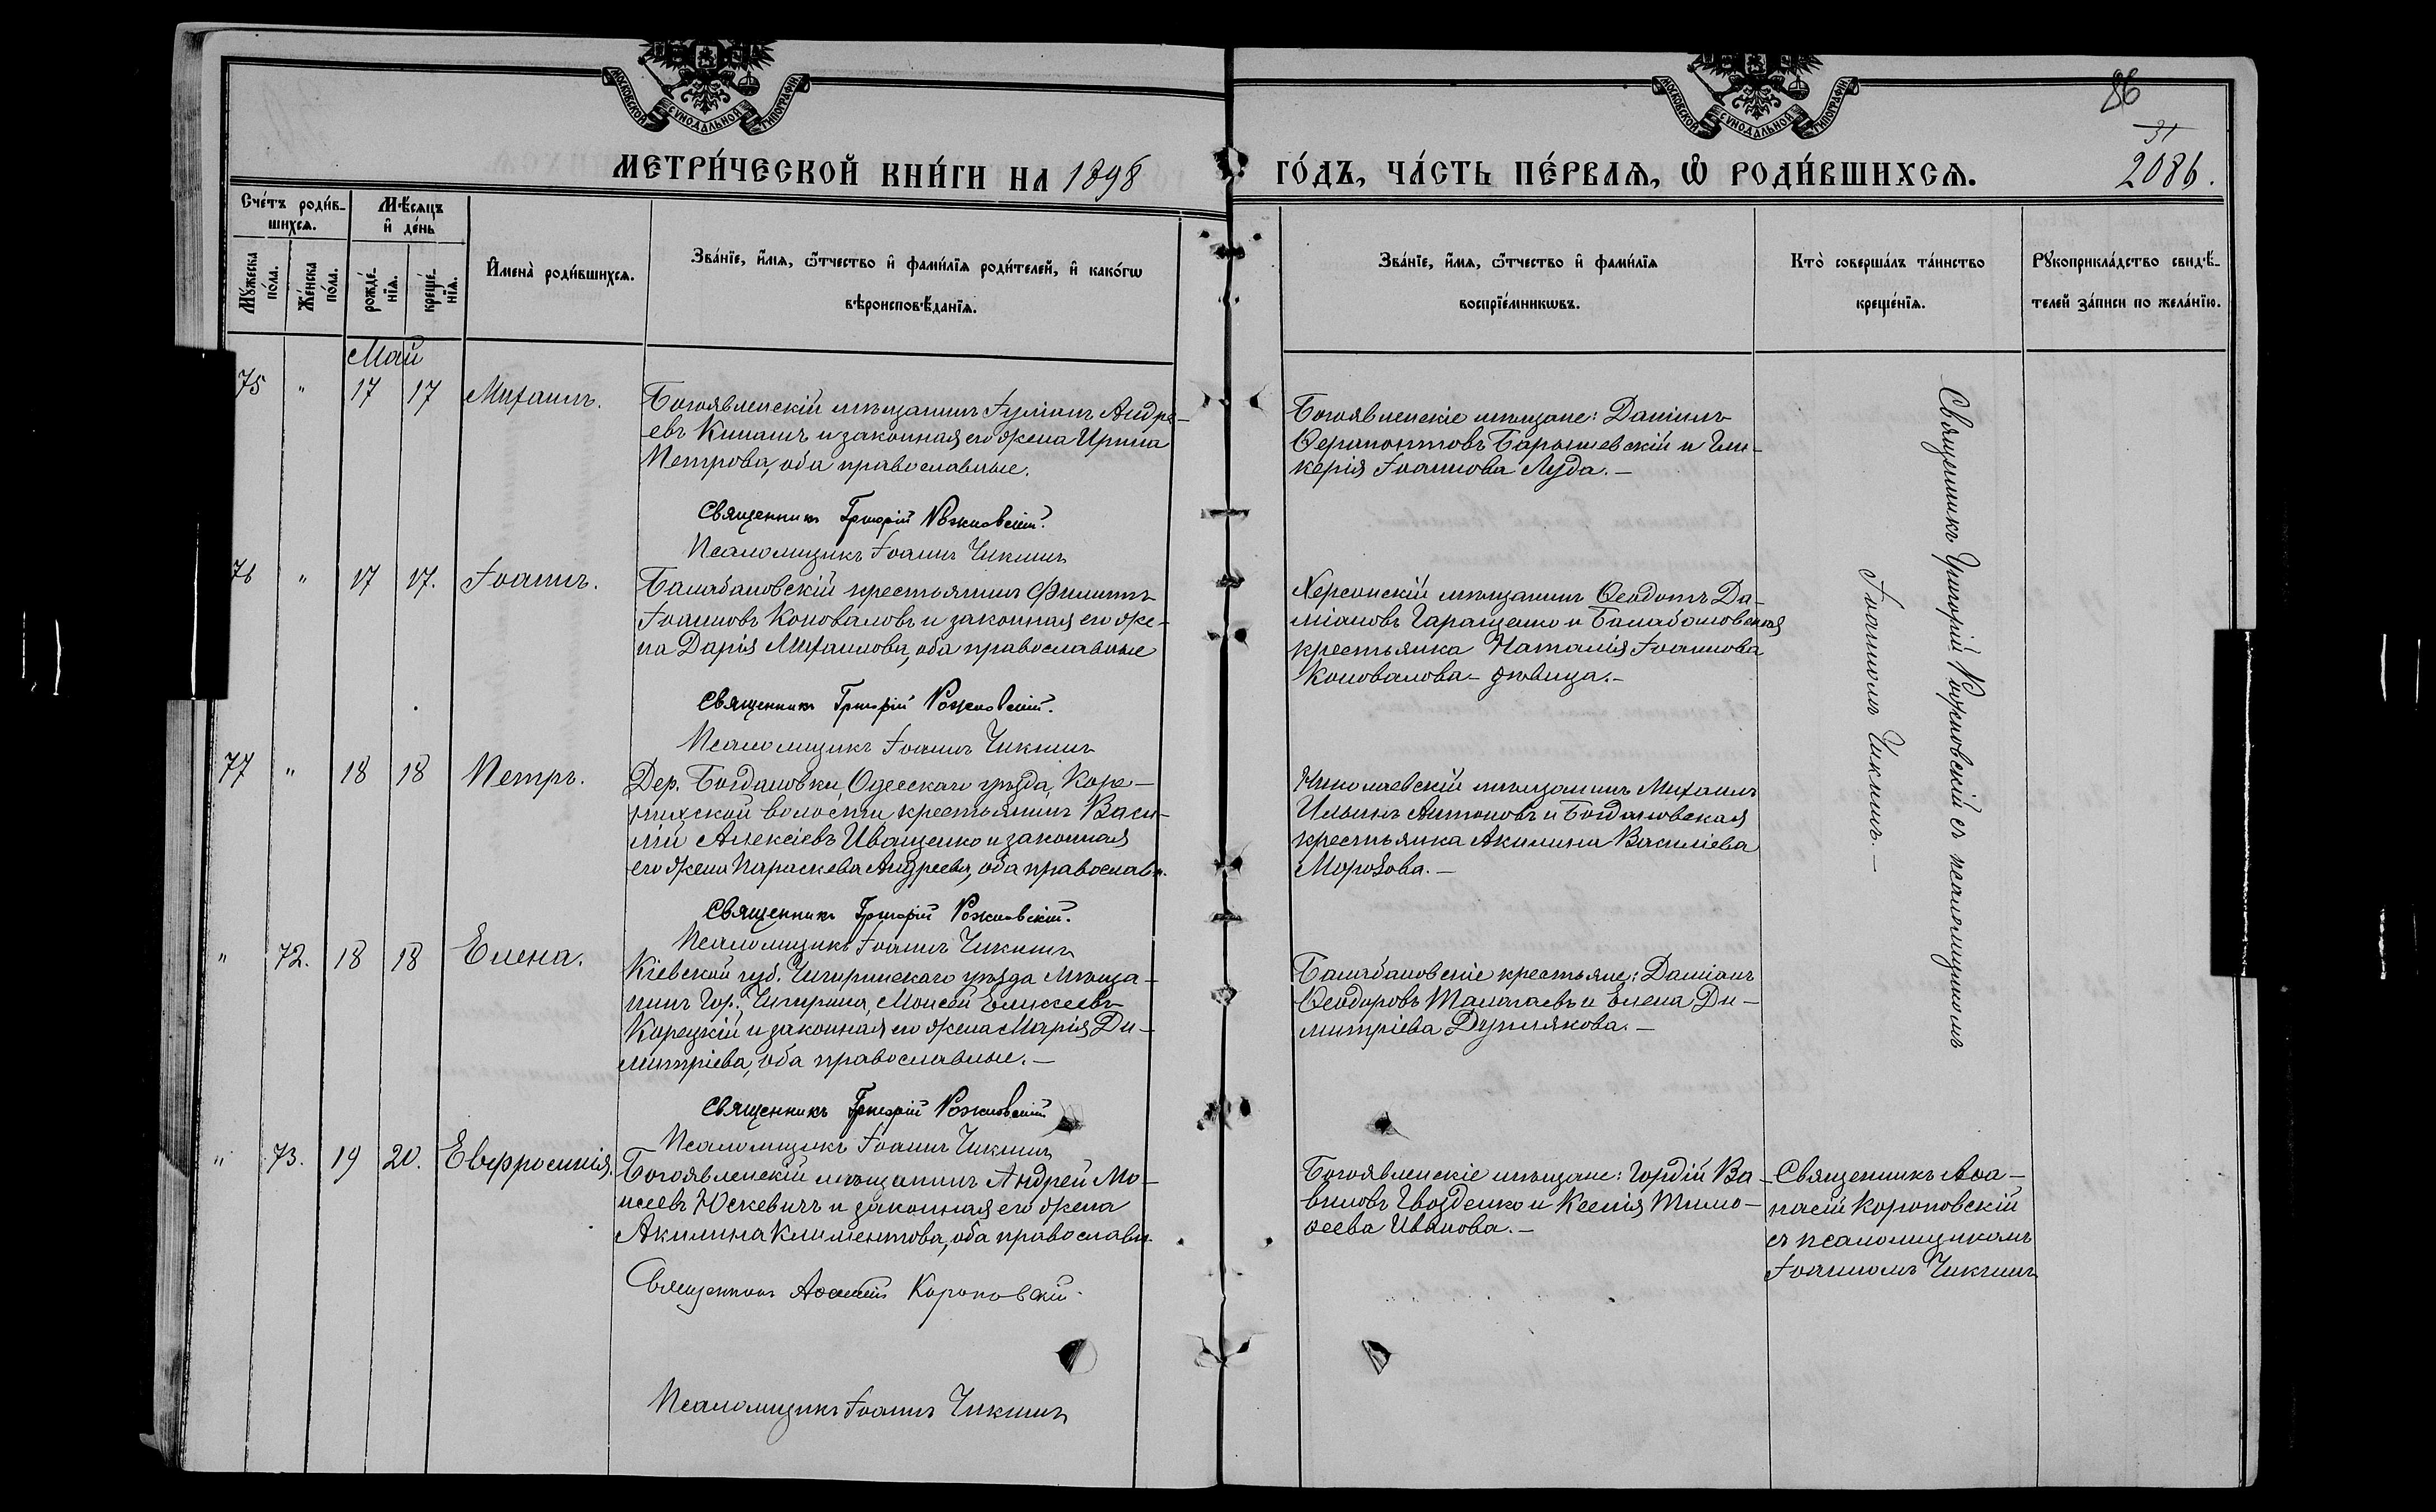 МОСКОВСКОЙ СѴНОДАЛЬНОЙ ТИПОГРАФІИ
МОСКОВСКОЙ СѴНОДАЛЬНОЙ ТИПОГРАФІИ
86
31
2086.
МЕТРИ́ЧЕСКОЙ КНИ́ГИ НА 1898
ГО́ДЪ, ЧА́СТЬ ПЕ́РВАѦ, Ѡ РОДИ́ВШИХСѦ.
Сче́тъ роди́в-
шихсѧ.
Мꙋ́жеска по́ла.
Же́нска по́ла.
Мѣ́сѧцъ
и҆ де́нь
рожде́-
нїѧ.
креще́-
нїѧ.
И҆мена̀ роди́вшихсѧ.
Зва́нїе, и҆́мѧ, ѻ҆́тчество и҆ фами́лїѧ роди́телей, и҆ како́гѡ
вѣроисповѣ́данїѧ.
Зва́нїе, и҆́мѧ, ѻ҆́тчество и҆ фами́лїѧ
воспрїе́мникѡвъ.
Кто̀ соверша́лъ та́инство
креще́нїѧ.
Рꙋкоприкла́дство свидѣ́-
телей за́писи по жела́нїю.
Май
75 " 17 17 Михаилъ.
Богоявленскій мѣщанинъ Іуліанъ Андре-
евъ Кинашъ и законная его жена Ирина
Петрова, оба православные.
Священникъ Григорій Рожновскій.
Псаломщикъ Іоаннъ Чикминъ
Богоявленскіе мѣщане: Даніилъ
Ѳерапонтовъ Барышевскій и Гли-
керія Іоаннова Луда.—
Священникъ Григорій Рожновскій съ псаломщикомъ
Іоанномъ Чикминъ.—
76 " 17 17. Іоаннъ.
Балабановскій крестьянинъ Филиппъ
Іоанновъ Коноваловъ и законная его же-
на Дарія Михаилова, оба православные
Священникъ Григорій Рожновскій.
Псаломщикъ Іоаннъ Чикминъ
Херсонскій мѣщанинъ Ѳеодотъ Да-
міановъ Гаращенко и Балабановская
крестьянка Наталія Іоаннова
Коновалова - дѣвица.-
77 " 18 18 Петръ.
Дер. Богдановки, Одесскаго уѣзда, Коре-
нихской волости крестьянинъ Васи-
лій Алексіевъ Иващенко и законная
его жена Параскева Андреева, оба православн.
Священникъ Григорій Рожновскій.
Псаломщикъ Іоаннъ Чикминъ
Николаевскій мѣщанинъ Михаилъ
Ильинъ Антоновъ и Богдановская
крестьянка Акилина Василіева
Морозова.—
" 72. 18 18 Елена.
Кіевской губ. Чигиринскаго уѣзда мѣща-
нинъ гор. Чигирина, Моисей Елисеевъ
Корецкій и законная его жена Марія Ди-
митріева, оба православные.—
Священникъ Григорій Рожновскій
Псаломщикъ Іоаннъ Чикминъ
Балабановскіе крестьяне: Даміанъ
Ѳеодоровъ Талалаевъ и Елена Ди-
митріева Дурнякова.—
" 73. 19 20. Евфросинія.
Богоявленскій мѣщанинъ Андрей Мо-
исеевъ Юскевичъ и законная его жена
Акилина Климентова, оба православн.
Священникъ Аѳанасій Короповскій.
Псаломщикъ Іоаннъ Чикминъ
Богоявленскіе мѣщане: Гордій Ва-
виловъ Гвозденко и Ксенія Тимо-
ѳеева Иванова.—
Священникъ Аѳа-
насій Короповскій
съ псаломщикомъ
Іоанномъ Чикминъ